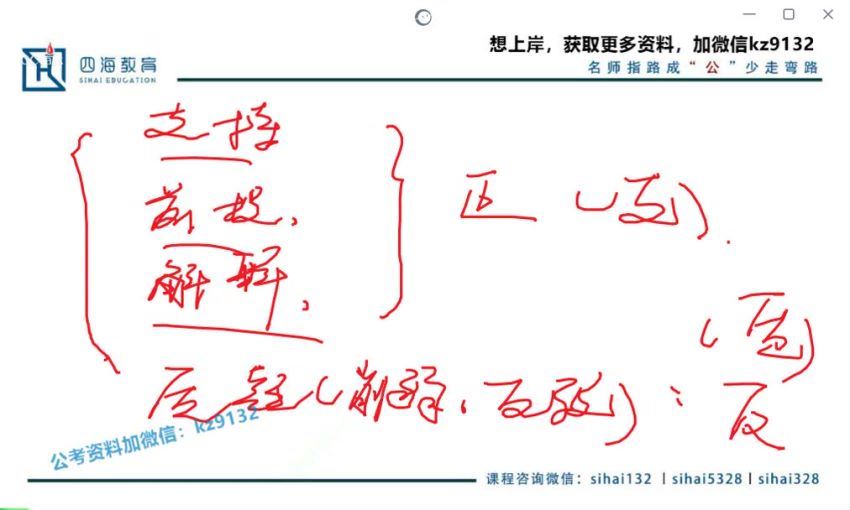 想上岸，获取更多资料，加微信kz9132
四海教育
SIHAI EDUCATION
名师指路成“公”少走弯路
支持
前提、
解释、
正
质疑(削弱、反驳)：反
公考资料加微信：kz9132
课程咨询微信：sihai132 | sihai5328 | sihai328